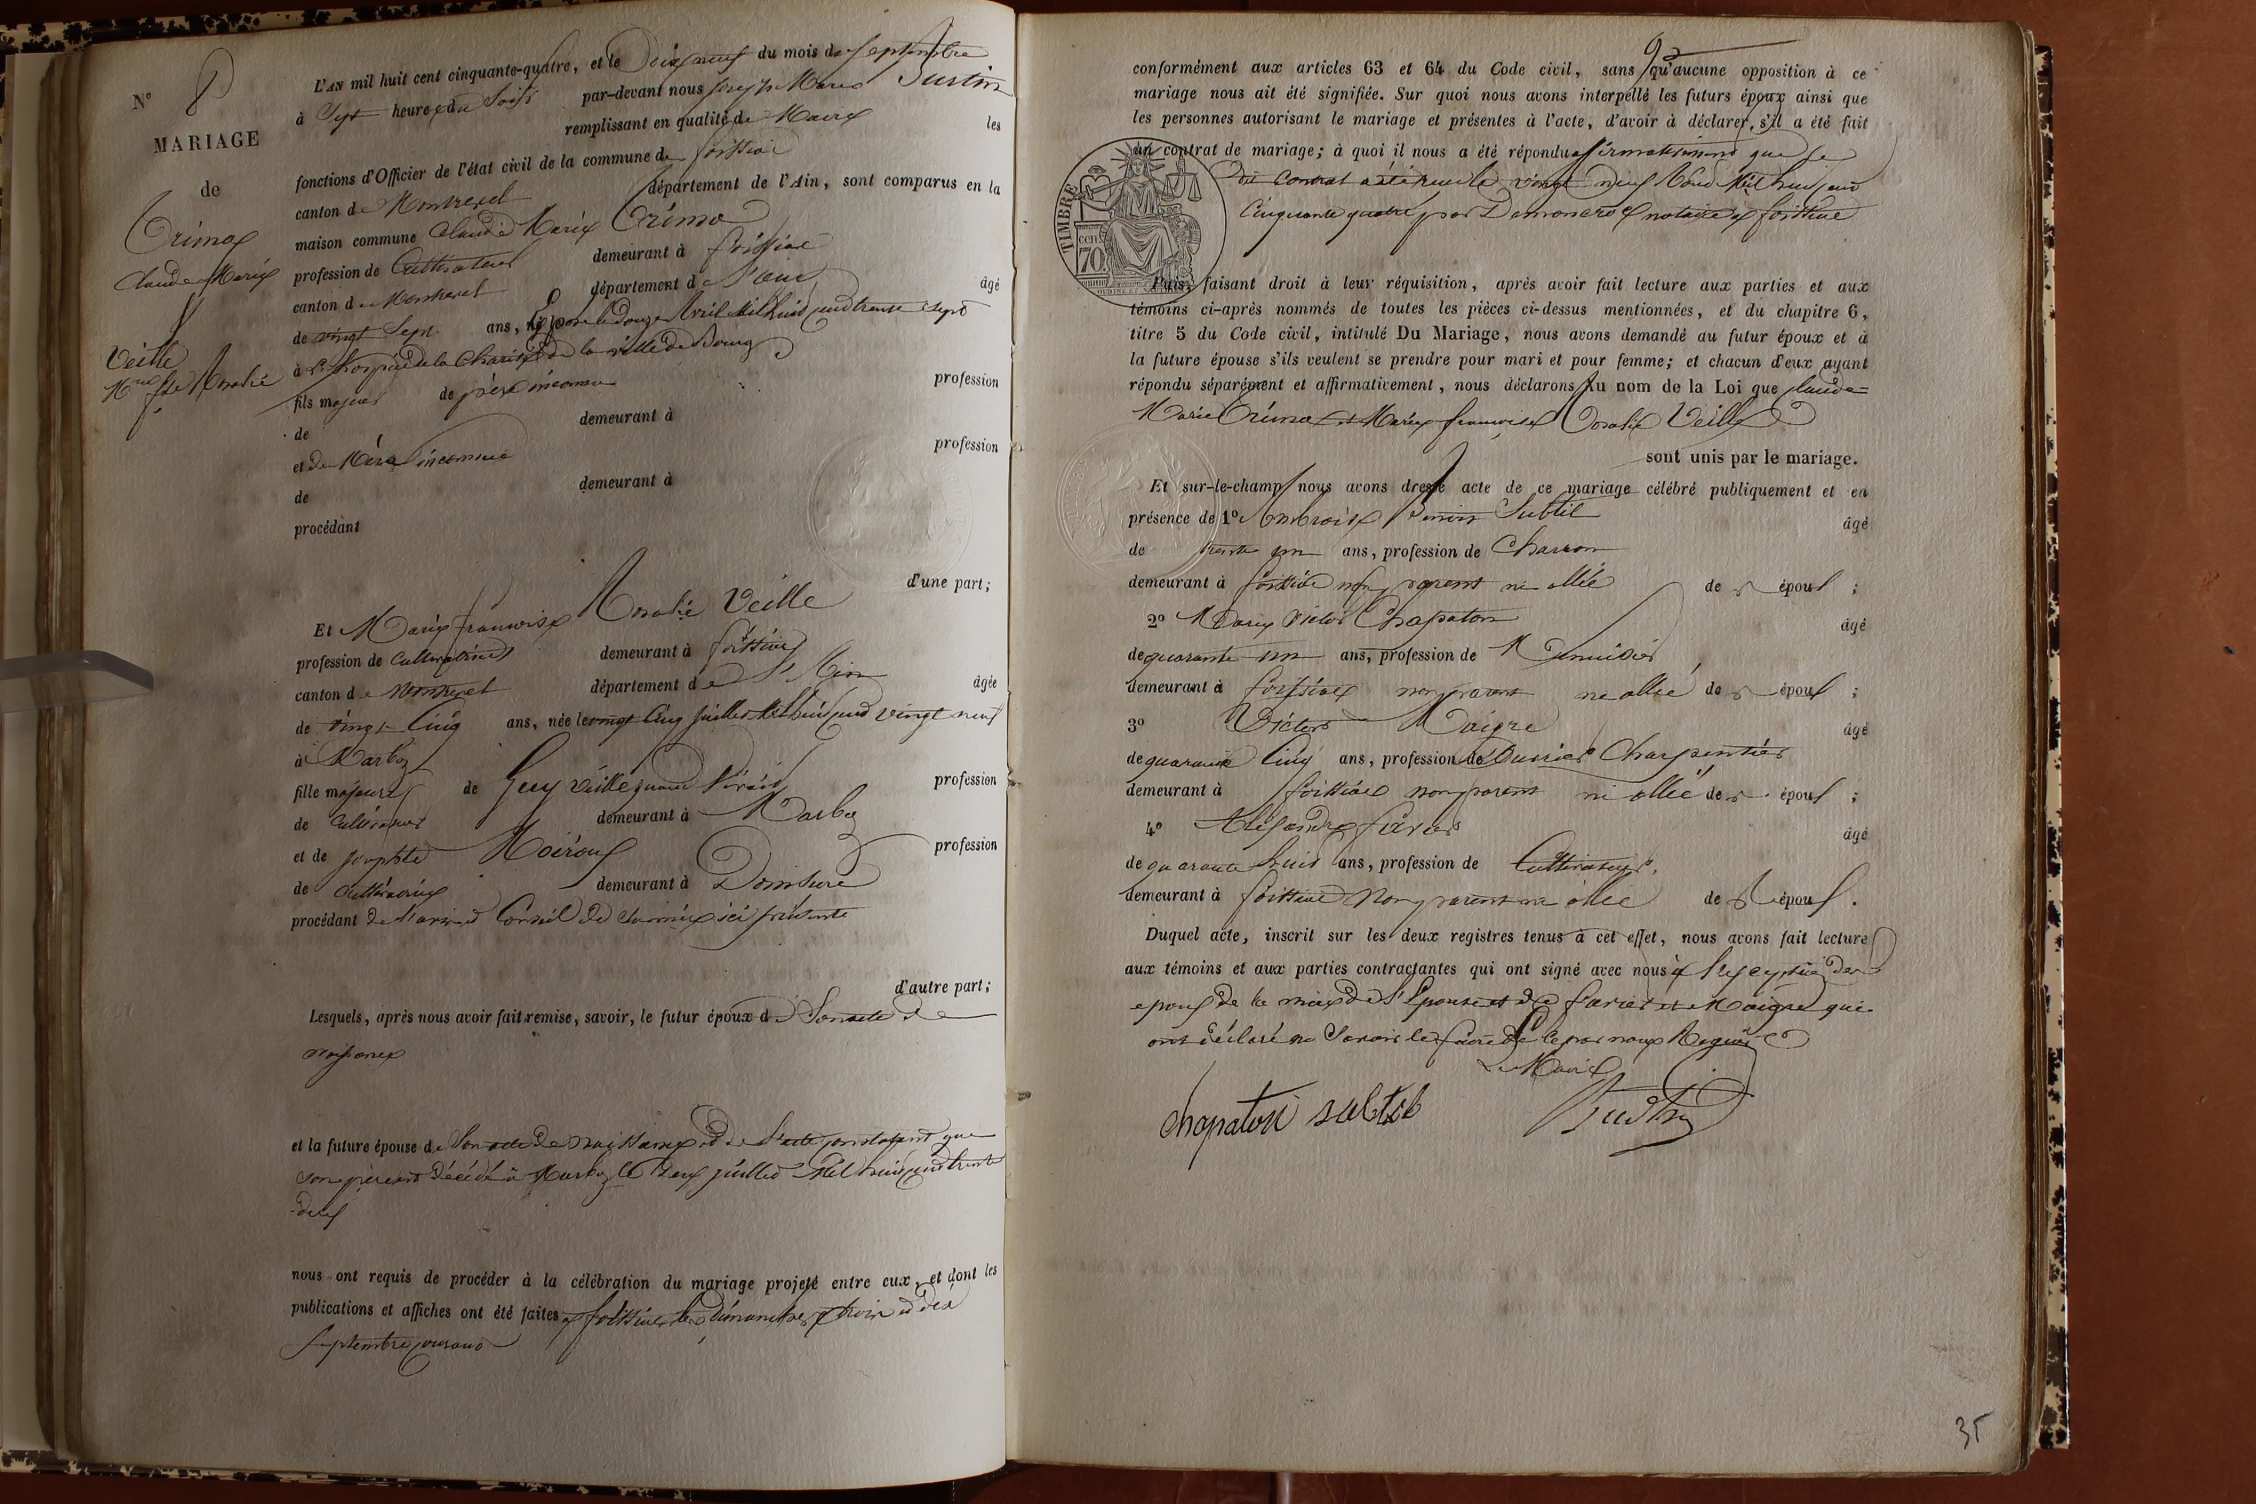 N° 8
MARIAGE
de
Crimo
Claude Marie
et
Veille
Mie fse Rosalie
L'AN mil huit cent cinquante-quatre, et le Dix neuf du mois de septembre
à Sept heures du Soir par-devant nous Joseph Marie Justin
remplissant en qualité de Maire les
fonctions d'Officier de l'état civil de la commune de foissiat
canton de Montrevel département de l'Ain, sont comparus en la
maison commune Claude Marie Crimo
profession de Cultivateur demeurant à foissiat
canton de Montrevel département de l'ain âgé
de vingt Sept ans, né le douze Avril Mil huit cent vingt sept
à l'hospice de la Charité de la ville de Bourg
fils majeur de père inconnu profession
de demeurant à
et de Mère inconnue profession
de demeurant à
procédant
d'une part;
Et Marie françoise Rosalie Veille
profession de Cultivatrice demeurant à foissiat
canton de Montrevel département de l'Ain âgée
de vingt Cinq ans, née le vingt Cinq Juillet Mil huit cent vingt neuf
à Marboz
fille majeure de Guy Veille quand vivait profession
de Cultivateur demeurant à Marboz
et de Josephte Moiroux profession
de Cultivatrice demeurant à Domsure
procédant de l'avis et Conseil de Sa mère ici présente
d'autre part;
Lesquels, après nous avoir fait remise, savoir, le futur époux de Son acte de
naissance
et la future épouse de Son acte de naissance et de l'acte constatant que
son père est décédé à Marboz le deux Juillet Mil huit cent trente
deux
nous ont requis de procéder à la célébration du mariage projeté entre eux, et dont les
publications et affiches ont été faites à foissiat les dimanches trois et dix
septembre courant
conformément aux articles 63 et 64 du Code civil, sans qu'aucune opposition à ce
mariage nous ait été signifiée. Sur quoi nous avons interpellé les futurs époux ainsi que
les personnes autorisant le mariage et présentes à l'acte, d'avoir à déclarer, s'il a été fait
un contrat de mariage; à quoi il nous a été répondu affirmativement que le
dit Contrat a été reçu le vingt neuf Août Mil huit cent
Cinquante quatre par notaire à foissiat
TIMBRE
cen.
70.
Puis, faisant droit à leur réquisition, après avoir fait lecture aux parties et aux
témoins ci-après nommés de toutes les pièces ci-dessus mentionnées, et du chapitre 6,
titre 5 du Code civil, intitulé Du Mariage, nous avons demandé au futur époux et à
la future épouse s'ils veulent se prendre pour mari et pour femme; et chacun d'eux ayant
répondu séparément et affirmativement, nous déclarons au nom de la Loi que Claude
Marie Crimo et Marie françoise Rosalie Veille
sont unis par le mariage.
Et sur-le-champ nous avons dressé acte de ce mariage célébré publiquement et en
présence de 1° Ambroise Benoit Subtil âgé
de trente un ans, profession de Charron
demeurant à foissiat non parent ni allié des époux;
2° Marie Victor Chapaton âgé
de quarante un ans, profession de Menuisier
demeurant à foissiat non parent ni allié des époux;
3° Victor Maigre âgé
de quarante Cinq ans, profession de Ouvrier Charpentier
demeurant à foissiat non parent ni allié des époux;
4° Alexandre favier âgé
de quarante huit ans, profession de Cultivateur
demeurant à foissiat Non parent ni allié des époux.
Duquel acte, inscrit sur les deux registres tenus à cet effet, nous avons fait lecture
aux témoins et aux parties contractantes qui ont signé avec nous à l'exception des
époux de la mère de l'Epouse et de favier et Maigre qui
ont déclaré ne Savoir le faire de ce par nous Requis
Le Maire
Chapaton subtil Justin
35